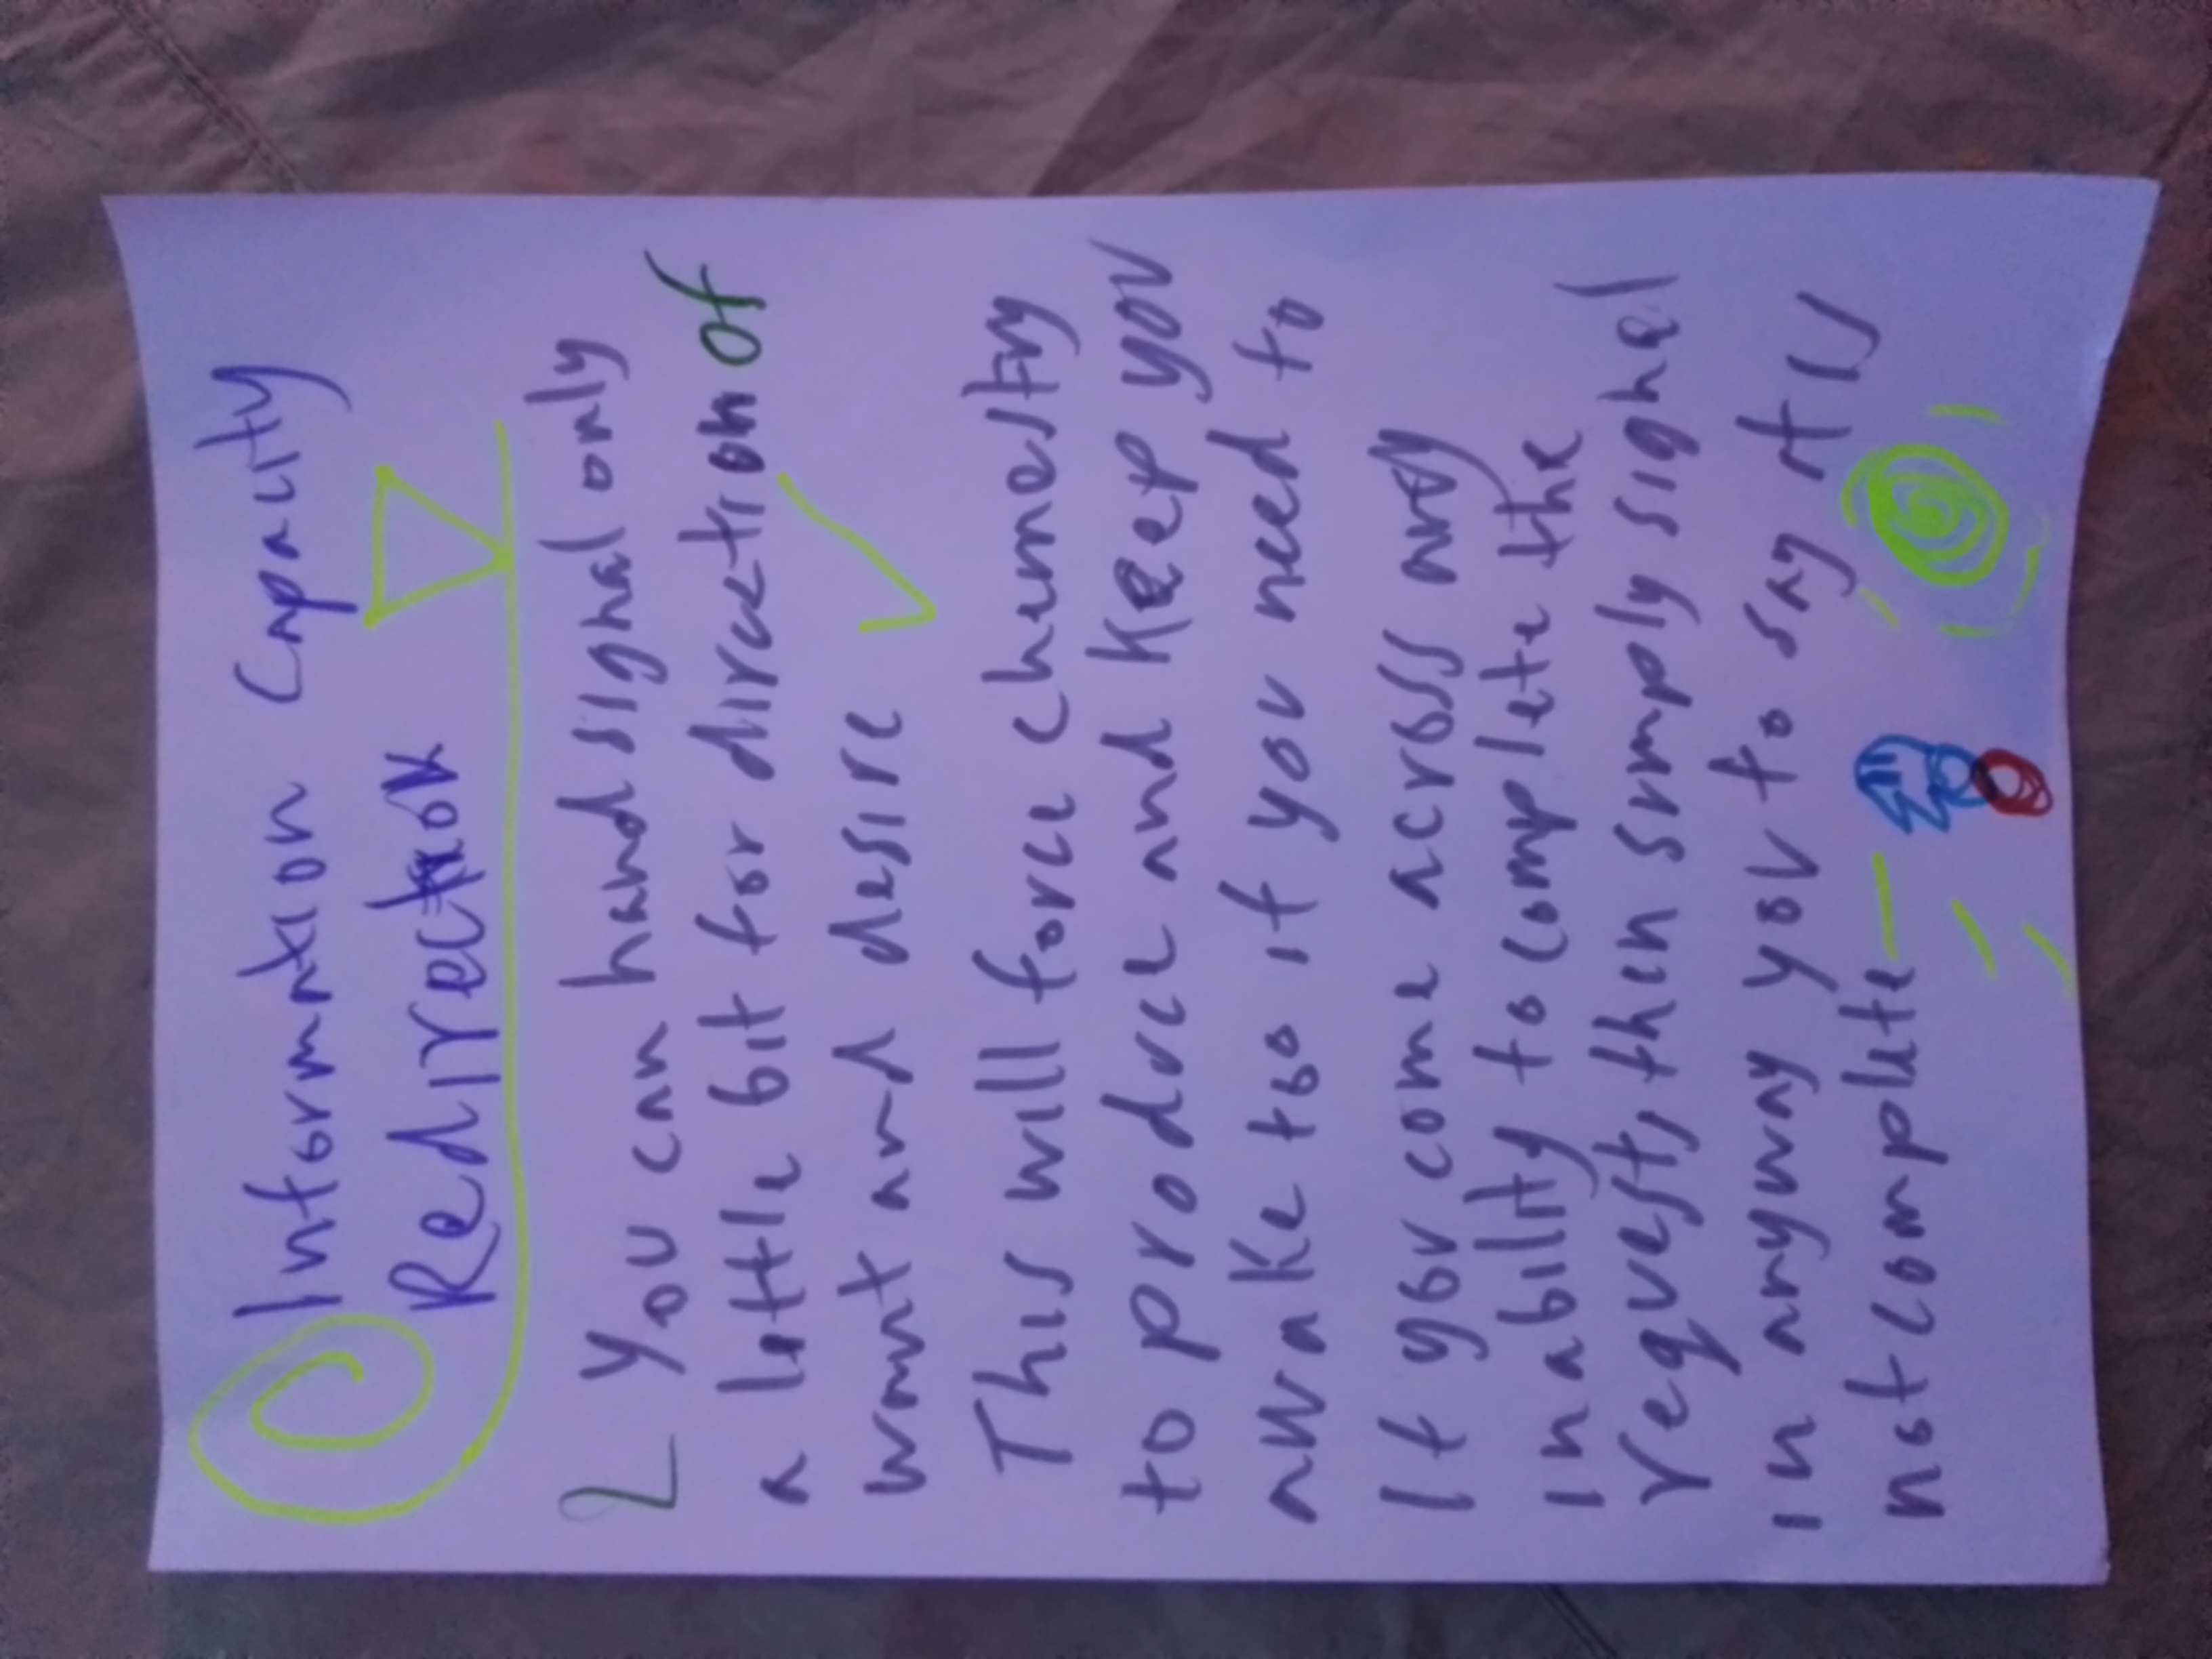 Information capacity
Redirector
You can hand signal only
a little bit for direction of
want and desire
This will force chemistry
to produce and keep you
awake too if you need to
If you come across any
inability to complete the
request then simply signal
in anyway you to say it is
not complete